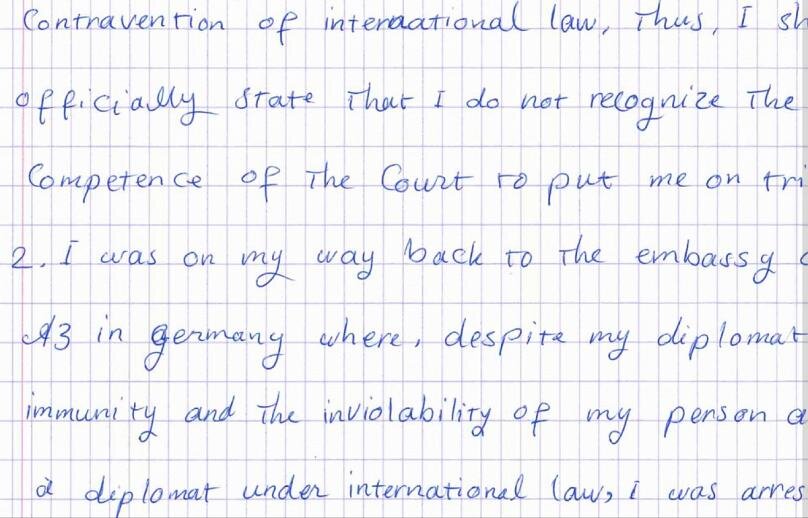 Contravention of internaational law, Thus, I sh
officially state That I do not recognize The
Competence of The Court to put me on tri
2. I was on my way back to The embassy
A3 in germany where, despite my diplomat
immunity and The inviolability of my person a
a diplomat under international law, i was arres